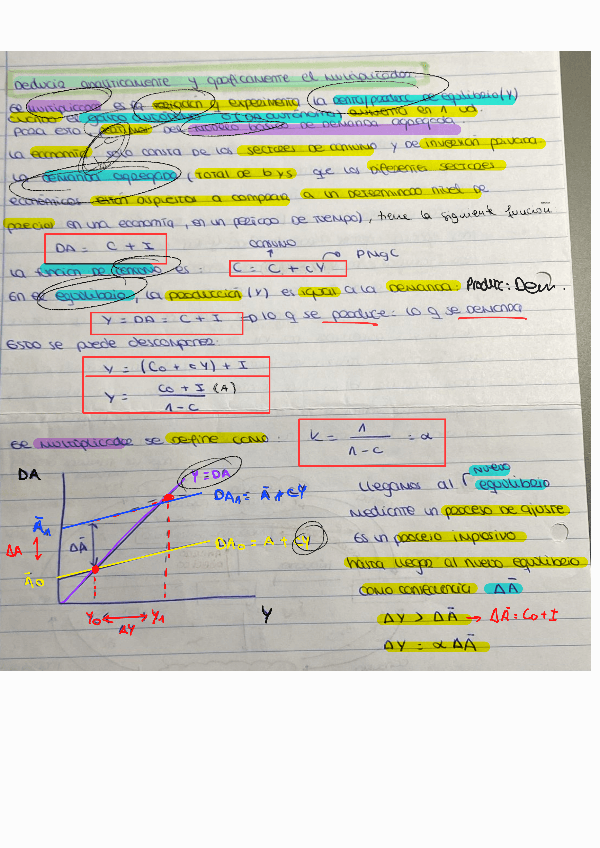 Deducir analíticamente y gráficamente el multiplicador
El multiplicador es la variación q experimenta la renta/producc de equilibrio (Y)
cuando el gasto autónomo aumenta en 1 ud.
Para esto partimos del modelo básico de demanda agregada.
La economía, solo consta de los sectores de consumo y de inversión privada
La demanda agregada (total de b y s que los diferentes sectores
económicos están dispuestos a comprar a un determinado nivel de
precios en una economía, en un periodo de tiempo), tiene la siguiente función
DA = C + I
consumo
PMgC
La función de consumo es: C = C + cY
En el equilibrio, la producción (Y) es igual a la demanda: Producc: Dem.
Y = DA = C + I → lo q se produce = lo q se demanda
Esto se puede descomponer:
Y = (C0 + cY) + I
Y = C0 + I (A) / 1 - c
El multiplicador se define como: K = 1 / 1 - c = α
DA
Y = DA
DA1 = Ā1 + cY
Ā1
ΔA
ΔĀ
DA0 = A + cY
Ā0
Y0 ΔY Y1
Y
Llegamos al nuevo equilibrio
mediante un proceso de ajuste
Es un proceso impositivo
hasta llegar al nuevo equilibrio
como consecuencia ΔĀ
ΔY > ΔĀ → ΔĀ = C0 + I
ΔY = α ΔĀ